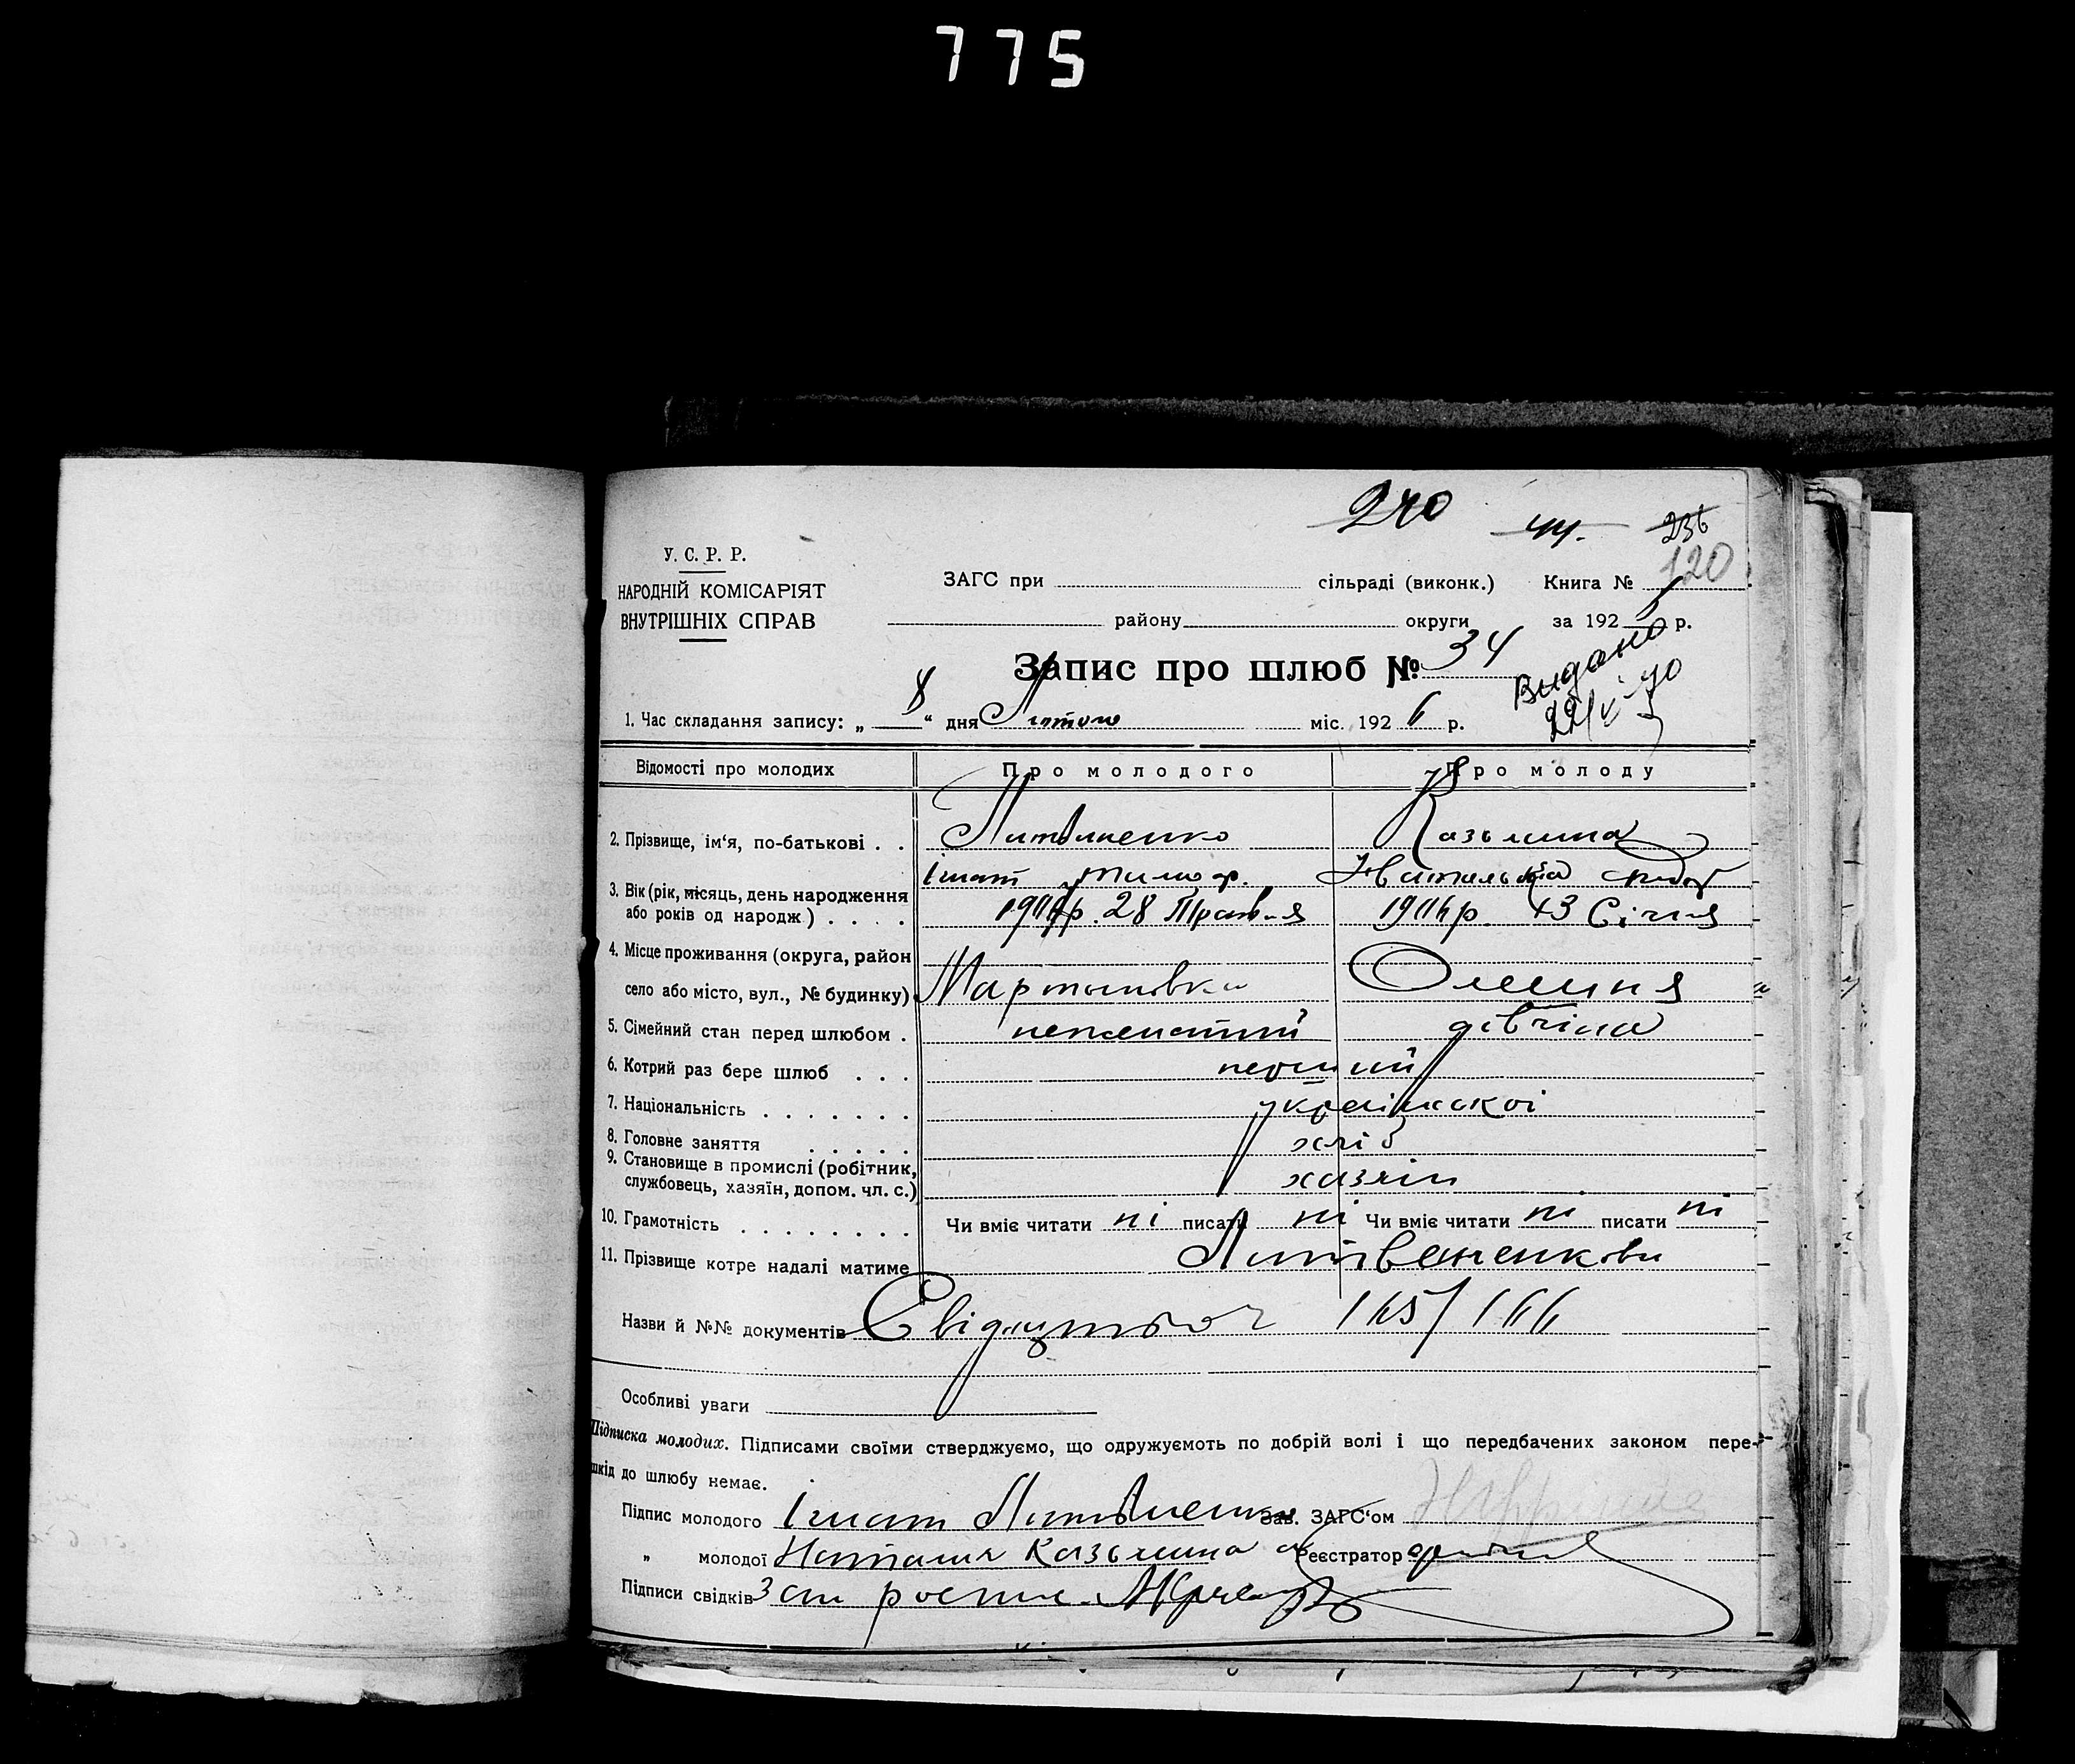 775
240 44. 236
120
У. С. Р. Р.
НАРОДНІЙ КОМІСАРІЯТ
ВНУТРІШНІХ СПРАВ
ЗАГС при сільраді (виконк.) Книга №
району округи за 192 р.
Видано
Запис про шлюб № 34
22/V 40
1. Час складання запису: „ 8 “ дня Лютого міс. 1926 р.
Відомості про молодих Про молодого Про молоду
2. Прізвище, ім‘я, по-батькові . . Литвиненко Казьмина
Ігнат Тимоф. Наталья
3. Вік (рік, місяць, день народження
або років од народж.) . . . . 28 Травня Січня
4. Місце проживання (округа, район
село або місто, вул., № будинку) Мартынівка Олешня
5. Сімейний стан перед шлюбом . нежонатий дівчина
6. Котрий раз бере шлюб . . . перший
7. Національність . . . . . . . української
8. Головне заняття . . . . . хліб
9. Становище в промислі (робітник,
службовець, хазяїн, допом. чл. с.) хазяін
10. Грамотність . . . . . . . . Чи вміє читати ні писати ні Чи вміє читати ні писати ні
11. Прізвище котре надалі матиме Литвененкови
Назви й №№ документів 165/166
Особливі уваги
Підписка молодих. Підписами своїми стверджуємо, що одружуємоть по добрій волі і що передбачених законом пере-
шкід до шлюбу немає.
Підпис молодого Ігнат Литвиненко Зав. ЗАГС‘ом
„ молодої Наталия Казьмина Реєстратор
Підписи свідків